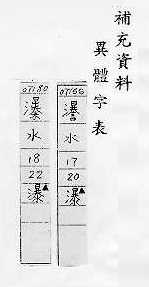 補充資料
異體字表
水
17
20
瀑▲
水
18
22
瀑▲